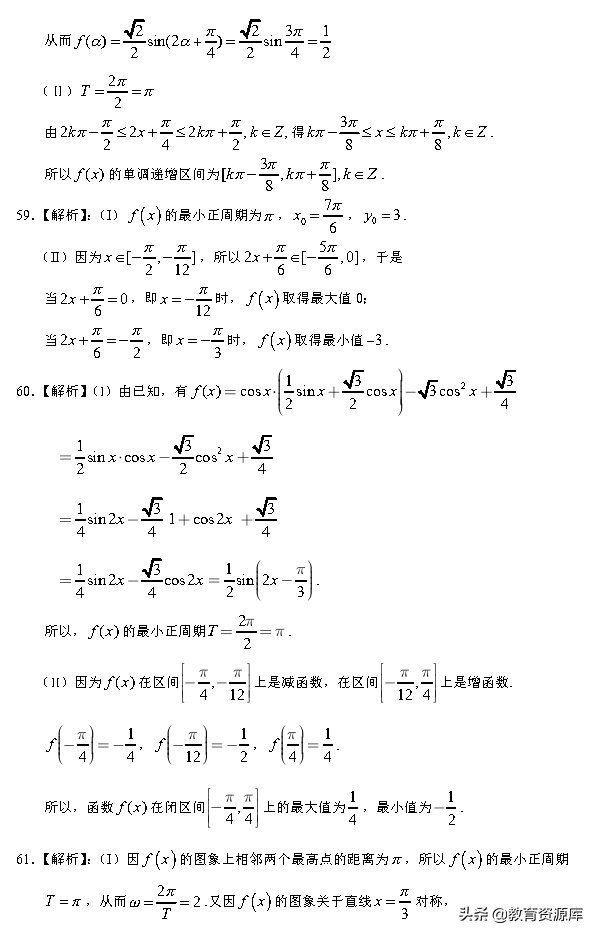 从而 f(α)=√2/2 sin(2α+π/4)=√2/2 sin 3π/4=1/2
(Ⅱ) T=2π/2=π
由2kπ−π/2≤2x+π/4≤2kπ+π/2,k∈Z,得kπ−3π/8≤x≤kπ+π/8,k∈Z.
所以f(x)的单调递增区间为[kπ−3π/8,kπ+π/8],k∈Z.
59.【解析】:(Ⅰ) f(x)的最小正周期为π, x₀=7π/6, y₀=3.
(Ⅱ)因为x∈[−π/2,−π/12],所以2x+π/6∈[−5π/6,0],于是
当2x+π/6=0,即x=−π/12时, f(x)取得最大值0;
当2x+π/6=−π/2,即x=−π/3时, f(x)取得最小值−3.
60.【解析】(Ⅰ)由已知,有f(x)=cosx·(1/2 sinx+√3/2 cosx)−√3cos²x+√3/4
=1/2 sinx·cosx−√3/2 cos²x+√3/4
=1/4 sin2x−√3/4 1+cos2x +√3/4
=1/4 sin2x−√3/4 cos2x=1/2 sin(2x−π/3).
所以, f(x)的最小正周期T=2π/2=π.
(Ⅱ)因为f(x)在区间[−π/4,−π/12]上是减函数,在区间[−π/12,π/4]上是增函数.
f(−π/4)=−1/4, f(−π/12)=−1/2, f(π/4)=1/4.
所以,函数f(x)在闭区间[−π/4,π/4]上的最大值为1/4,最小值为−1/2.
61.【解析】:(Ⅰ)因f(x)的图象上相邻两个最高点的距离为π,所以f(x)的最小正周期
T=π,从而ω=2π/T=2.又因f(x)的图象关于直线x=π/3对称,
头条 @教育资源库